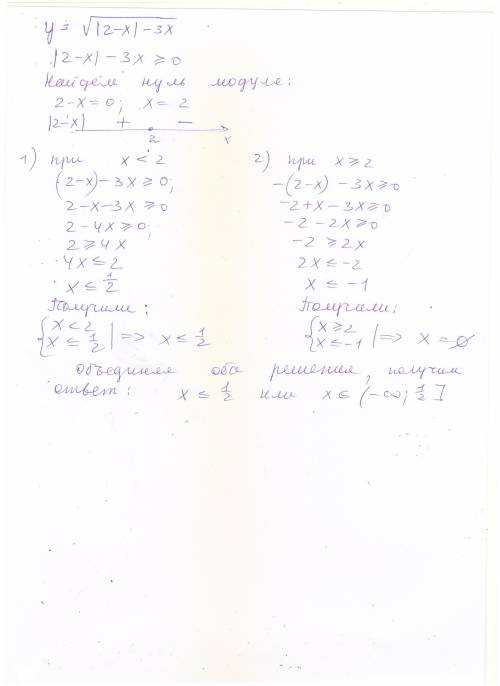 y = √|2-x| - 3x
|2-x| - 3x ≥ 0
Найдём нуль модуля:
2-x=0; x = 2
|2-x| + -
2 x
1) при x < 2
(2-x)-3x ≥ 0;
2-x-3x ≥ 0
2-4x ≥ 0;
2 ≥ 4x
4x ≤ 2
x ≤ 1/2
Получили:
{x < 2
x ≤ 1/2 | => x ≤ 1/2
2) при x ≥ 2
-(2-x) -3x ≥ 0
-2+x-3x ≥ 0
-2-2x ≥ 0
-2 ≥ 2x
2x ≤ -2
x ≤ -1
Получили:
{x ≥ 2
x ≤ -1 | => x = ∅
объединяя оба решения, получим
ответ: x ≤ 1/2 или x ∈ (-∞; 1/2]